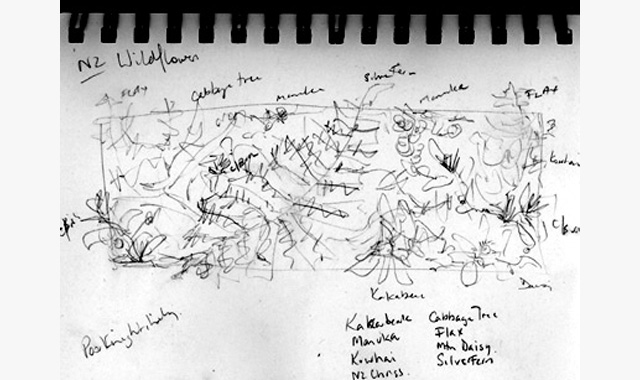 NZ Wildflowers
FLAX
Cabbage tree
manuka
Silver Fern
Manuka
FLAX
Kowhai
Daisy
Kakabeak
Kakabeak Cabbage Tree
Manuka Flax
Kowhai Mtn Daisy
NZ Silver Fern